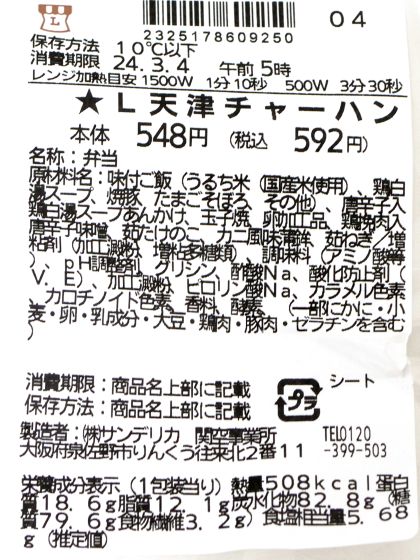 2325178609250
04
保存方法 10℃以下
消費期限 24.3.4 午前5時
レンジ加熱目安1500W 1分10秒 500W 3分30秒
★L天津チャーハン
本体 548円 (税込 592円)
名称:弁当
原材料名:味付ご飯(うるち米(国産米使用)、鶏白
湯スープ、焼豚、たまごそぼろ、その他)、唐辛子入
鶏白湯スープあんかけ、玉子焼、卵加工品、鶏挽肉入
唐辛子味噌、茹たけのこ、カニ風味蒲鉾、茹ねぎ/増
粘剤(加工澱粉、増粘多糖類)、調味料(アミノ酸等
)、pH調整剤、グリシン、酢酸Na、酸化防止剤(
V.E)、加工澱粉、ピロリン酸Na、カラメル色素
、カロチノイド色素、香料、酵素、(一部にかに・小
麦・卵・乳成分・大豆・鶏肉・豚肉・ゼラチンを含む
)
消費期限:商品名上部に記載
保存方法:商品名上部に記載
プラ
シート
製造者:㈱サンデリカ 関空事業所 TEL0120
大阪府泉佐野市りんくう往来北2番11 -399-503
栄養成分表示(1包装当り)熱量508kcal蛋白
質18.6g脂質12.1g炭水化物82.8g(糖
質79.6g食物繊維3.2g)食塩相当量5.68
g(推定値)